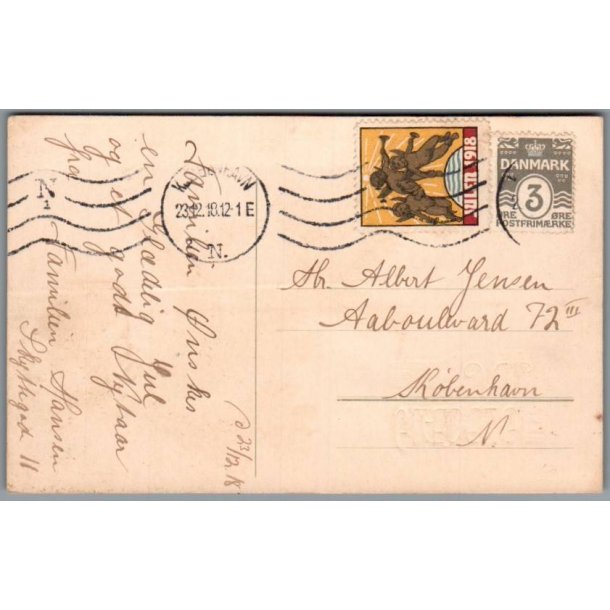 Familien Ønskes
en Glædelig Jul
og et godt Nytaar
fra
Familien Hansen
Skyttegad 11
d 23/12 18
KØBENHAVN
23.12.18.12-1 E
N.
N
1
JULEN 1918
DANMARK
3
ØRE ØRE
POSTFRIMÆRKE
Hr. Albert Jensen
Aaboulevard 72 III
København
N.